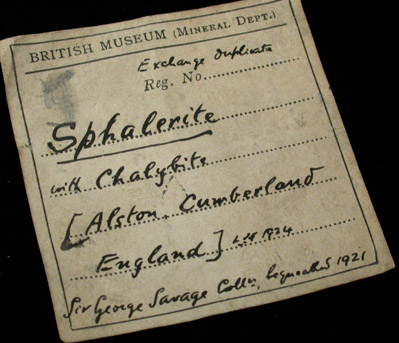 BRITISH MUSEUM (MINERAL DEPT.)
Exchange duplicate
Reg. No.
Sphalerite
with Chalybite
[Alston. Cumberland
England] 1924
Sir George Savage Colln, bequeathed 1921